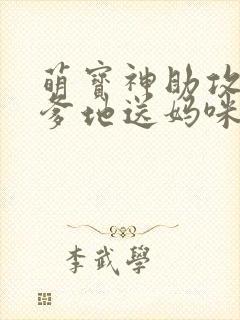 萌寳神助攻
爹地送妈咪
李武學